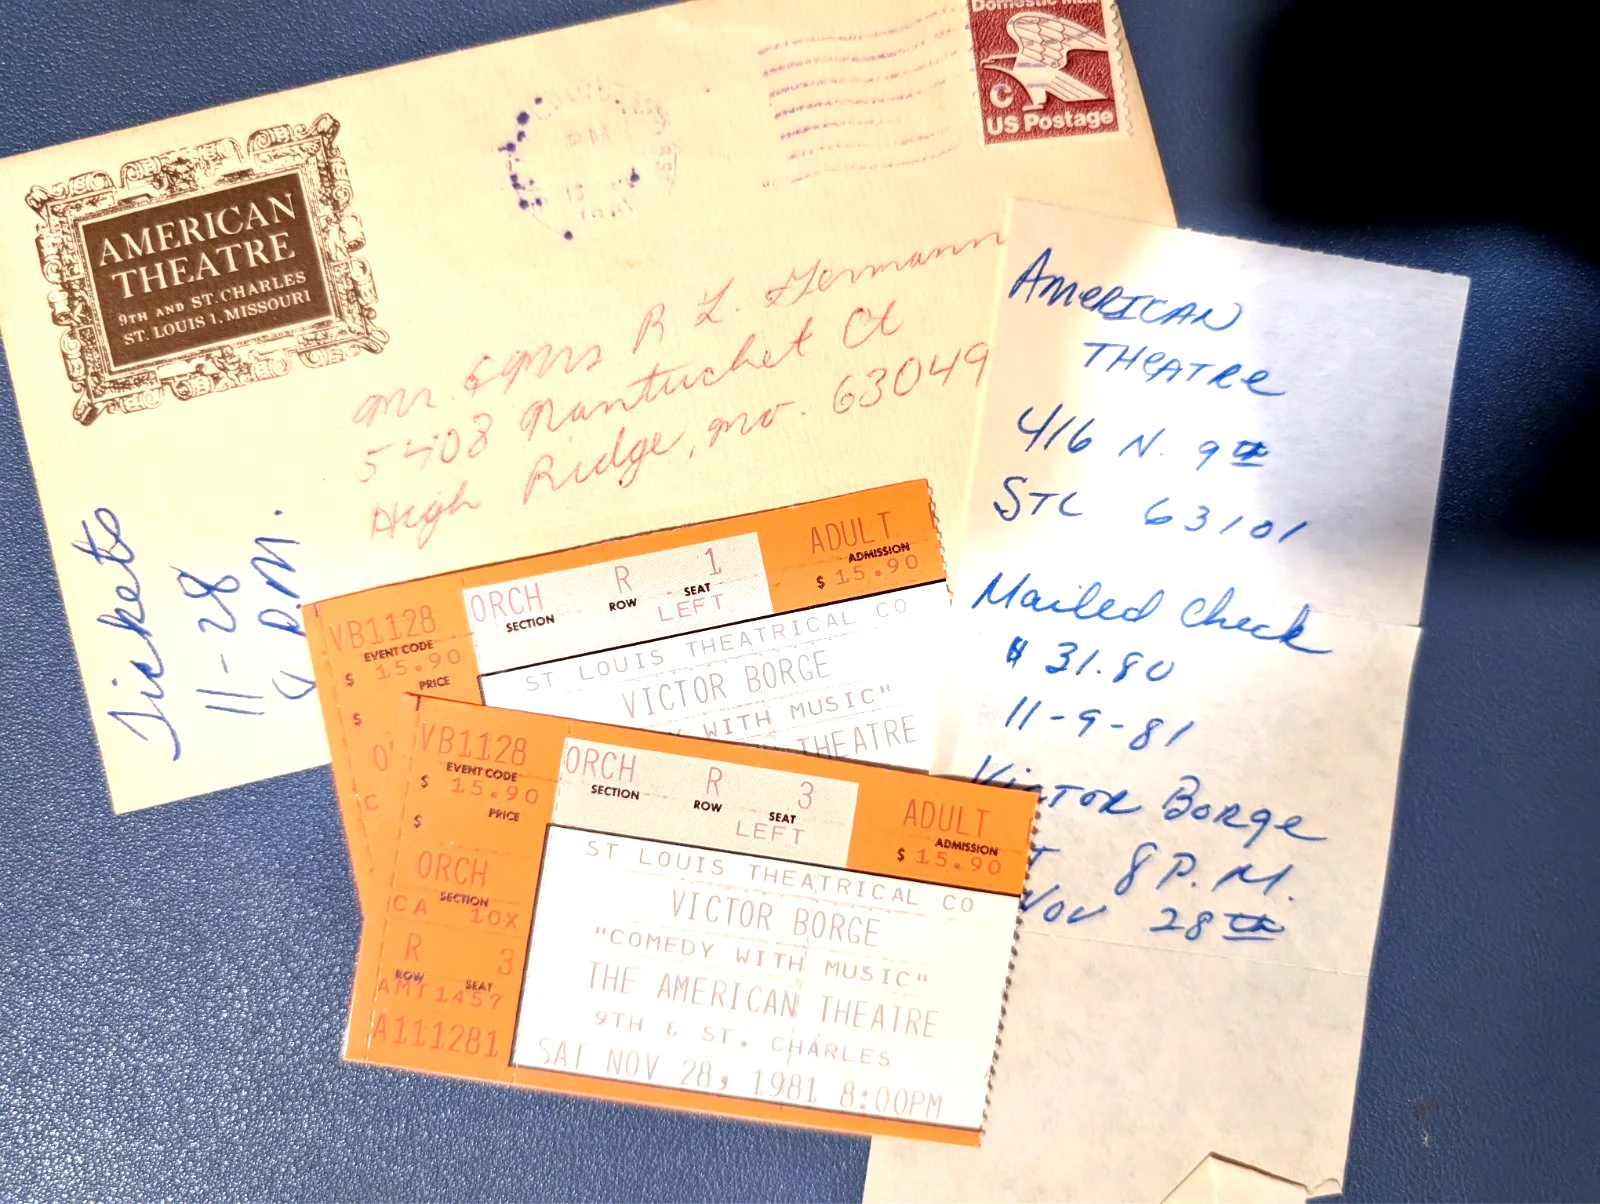 AMERICAN
THEATRE
9TH AND ST. CHARLES
ST. LOUIS 1, MISSOURI
PM
13
1981
Domestic Mail
C
US Postage
Mr. & Mrs R L. Germann
5408 Nantucket Ct
High Ridge, Mo. 63049
Tickets
11-28
8 P.M.
AMERICAN
THEATRE
416 N. 9th
STL 63101
Mailed Check
$ 31.80
11-9-81
Victor Borge
8 P.M.
Nov 28th
VB1128
EVENT CODE
$ 15.90
PRICE
$
C
ORCH R 1
SECTION ROW SEAT
LEFT
ADULT
ADMISSION
$ 15.90
ST LOUIS THEATRICAL CO
VICTOR BORGE
WITH MUSIC"
THEATRE
VB1128
EVENT CODE
$ 15.90
PRICE
$
ORCH
SECTION
CA 10X
R 3
ROW SEAT
AMT1457
A111281
ORCH R 3
SECTION ROW SEAT
LEFT
ADULT
ADMISSION
$ 15.90
ST LOUIS THEATRICAL CO
VICTOR BORGE
"COMEDY WITH MUSIC"
THE AMERICAN THEATRE
9TH & ST. CHARLES
SAT NOV 28, 1981 8:00PM